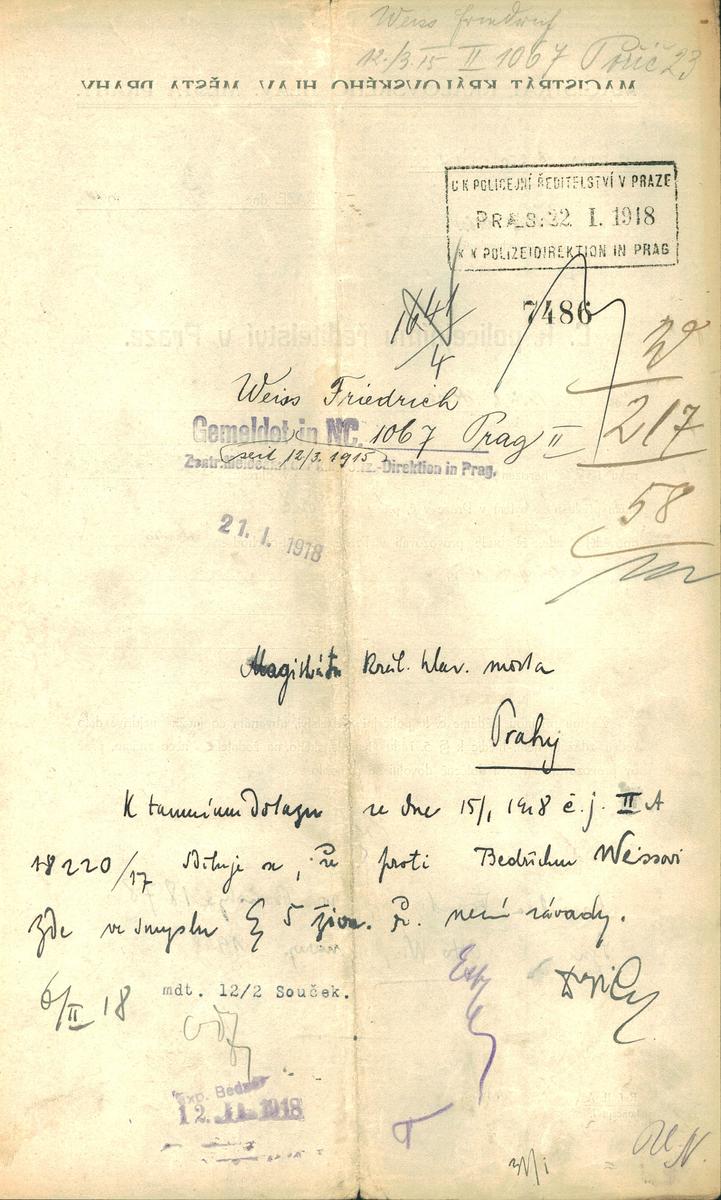 Weiss Friedrich
12./3.15 II 1067 Poříč 23
MAGISTRÁT KRÁLOVSKÉHO HLAV. MĚSTA PRAHY
C K POLICEJNÍ ŘEDITELSTVÍ V PRAZE
PRAES: 22 I. 1918
K K POLIZEIDIREKTION IN PRAG
1641
4
7486
217
58
Weiss Friedrich
Gemeldet in NC. 1067 Prag II
seit 12/3. 1915
-Direktion in Prag.
21. I. 1918
Magistrátu král. hlav. města
Prahy
K tamnímu dotazu ze dne 15/1 1918 č. j. II A
18220/17 sděluje se, že proti Bedřichu Weissovi
zde ve smyslu § 5 živn. ř. není závady.
6/II 18
mdt. 12/2 Souček.
Exp.
12. II. 1918